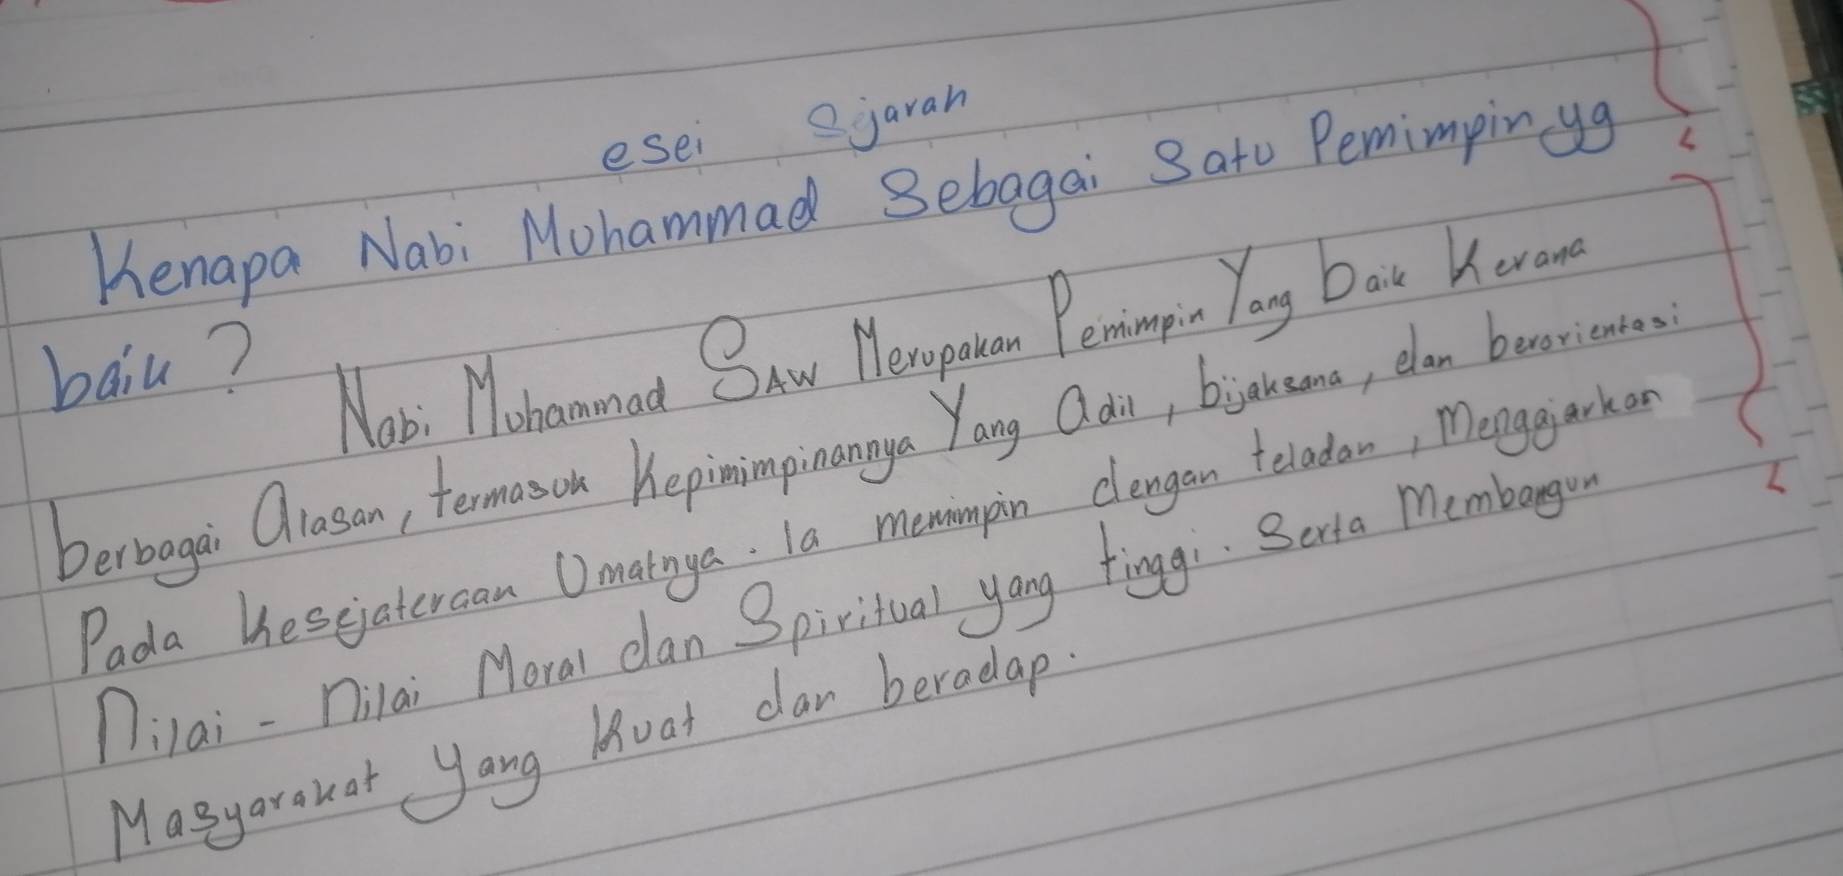 esei Sejarah
Kenapa Nabi Muhammad Sebagai Satu Pemimpin yg
baik ?
Nabi Muhammad SAW Merupakan Pemimpin Yang baik Kerana
berbagai alasan, termasuk Kepimimpinannya Yang adil, bijaksana, dan berorientasi
Pada Kesejateraan Umatnya. Ia memimpin dengan teladan, Mengajarkan
Nilai - nilai Moral dan Spiritual yang tinggi. Serta Membangun
Masyarakat Yang Kuat dan beradap.